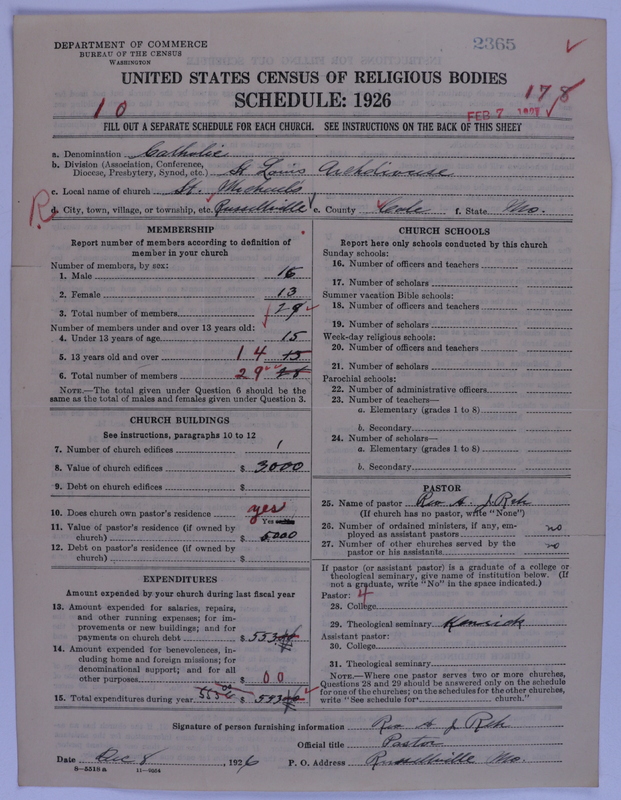 DEPARTMENT OF COMMERCE
BUREAU OF THE CENSUS
WASHINGTON
2365
UNITED STATES CENSUS OF RELIGIOUS BODIES
SCHEDULE: 1926
10
178
FEB 7 1927
FILL OUT A SEPARATE SCHEDULE FOR EACH CHURCH. SEE INSTRUCTIONS ON THE BACK OF THIS SHEET
a. Denomination Catholic
b. Division (Association, Conference,
Diocese, Presbytery, Synod, etc.) St Louis Archdiocese
c. Local name of church St. Michaels
R
d. City, town, village, or township, etc. Russellville e. County Cole f. State Mo.
MEMBERSHIP
Report number of members according to definition of
member in your church
Number of members, by sex:
1. Male 16
2. Female 13
3. Total number of members 29
Number of members under and over 13 years old:
4. Under 13 years of age 15
5. 13 years old and over 14 13
6. Total number of members 29 28
NOTE.—The total given under Question 6 should be the
same as the total of males and females given under Question 3.
CHURCH BUILDINGS
See instructions, paragraphs 10 to 12
7. Number of church edifices 1
8. Value of church edifices $ 3000
9. Debt on church edifices $
10. Does church own pastor's residence yes
Yes
11. Value of pastor's residence (if owned by
church) $ 5000
12. Debt on pastor's residence (if owned by
church) $
EXPENDITURES
Amount expended by your church during last fiscal year
13. Amount expended for salaries, repairs,
and other running expenses; for im-
provements or new buildings; and for
payments on church debt $ 553
14. Amount expended for benevolences, in-
cluding home and foreign missions; for
denominational support; and for all
other purposes $ 00
15. Total expenditures during year $ 553
CHURCH SCHOOLS
Report here only schools conducted by this church
Sunday schools:
16. Number of officers and teachers
17. Number of scholars
Summer vacation Bible schools:
18. Number of officers and teachers
19. Number of scholars
Week-day religious schools:
20. Number of officers and teachers
21. Number of scholars
Parochial schools:
22. Number of administrative officers
23. Number of teachers—
a. Elementary (grades 1 to 8)
b. Secondary
24. Number of scholars—
a. Elementary (grades 1 to 8)
b. Secondary
PASTOR
25. Name of pastor Rev A. J. Reh
(If church has no pastor, write "None")
26. Number of ordained ministers, if any, em-
ployed as assistant pastors no
27. Number of other churches served by the
pastor or his assistants no
If pastor (or assistant pastor) is a graduate of a college or
theological seminary, give name of institution below. (If
not a graduate, write "No" in the space indicated.)
Pastor: 4
28. College
29. Theological seminary Kenrick
Assistant pastor:
30. College
31. Theological seminary
NOTE.—Where one pastor serves two or more churches,
Questions 28 and 29 should be answered only on the schedule
for one of the churches; on the schedules for the other churches,
write "See schedule for church."
Signature of person furnishing information Rev A J Reh
Official title Pastor
Date Dec 8, 1926 P. O. Address Russellville Mo.
8—5518a 11—9504